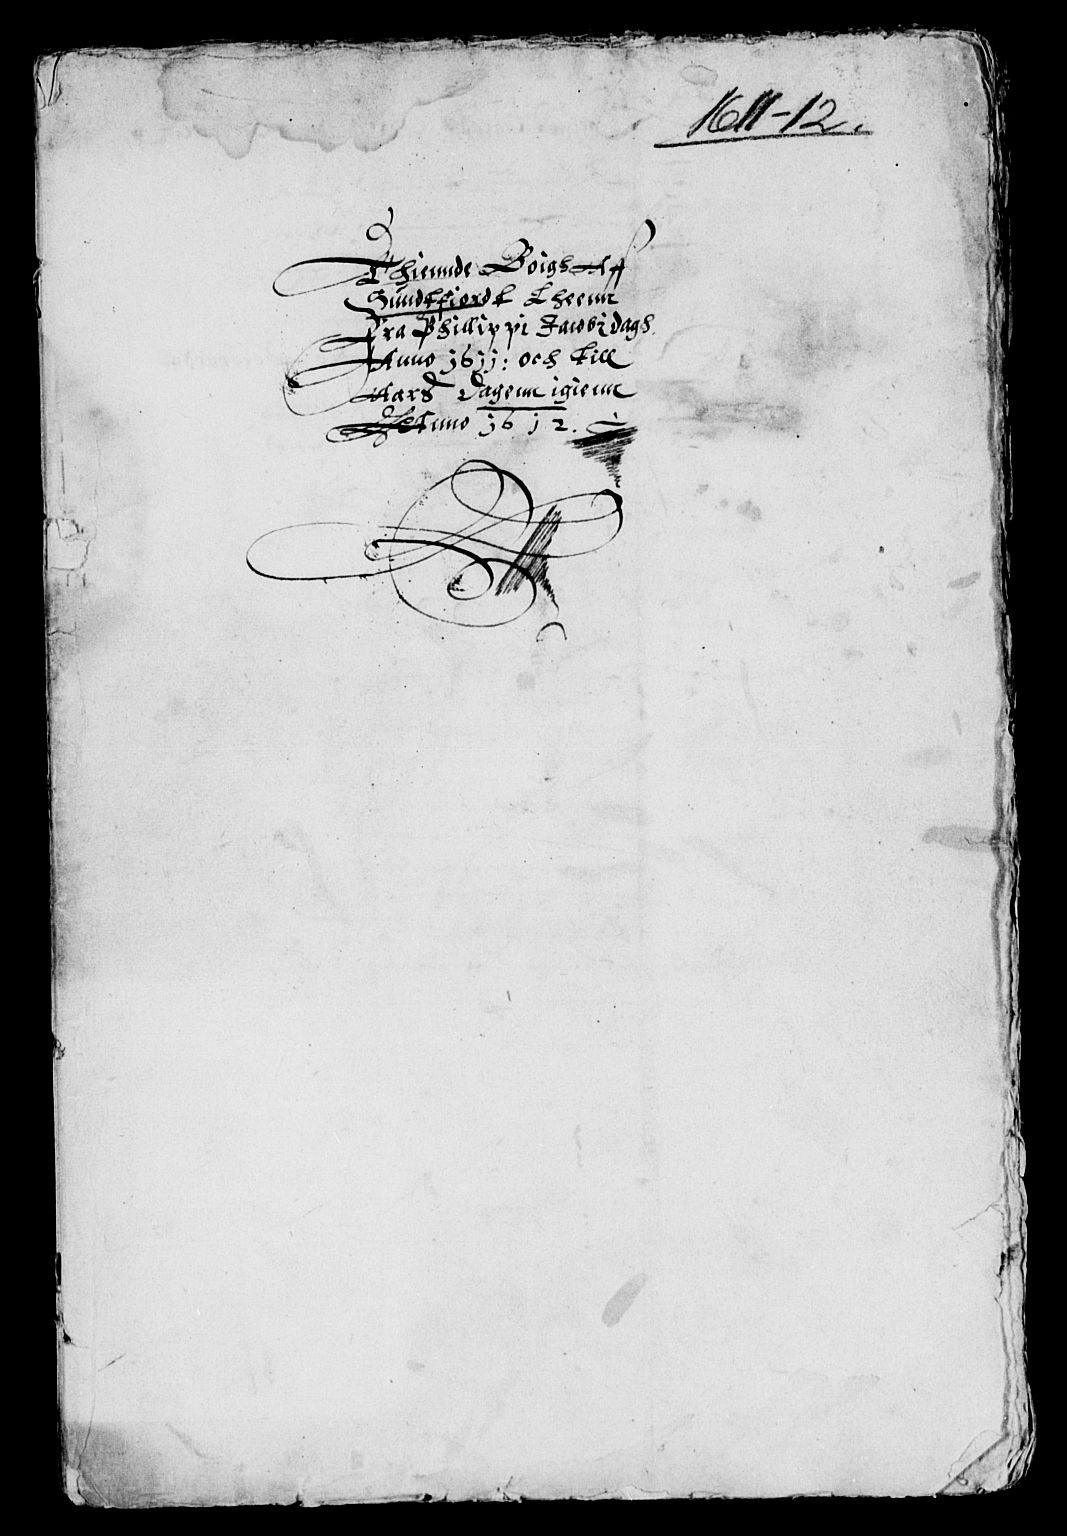 1611-12.
Thiennde Boigh Aff
Sundtfiordt Lheenn
Fra Phillippi Jacobj dagh
Anno 1611: och till
Aars dagenn igienn
Anno 1612.